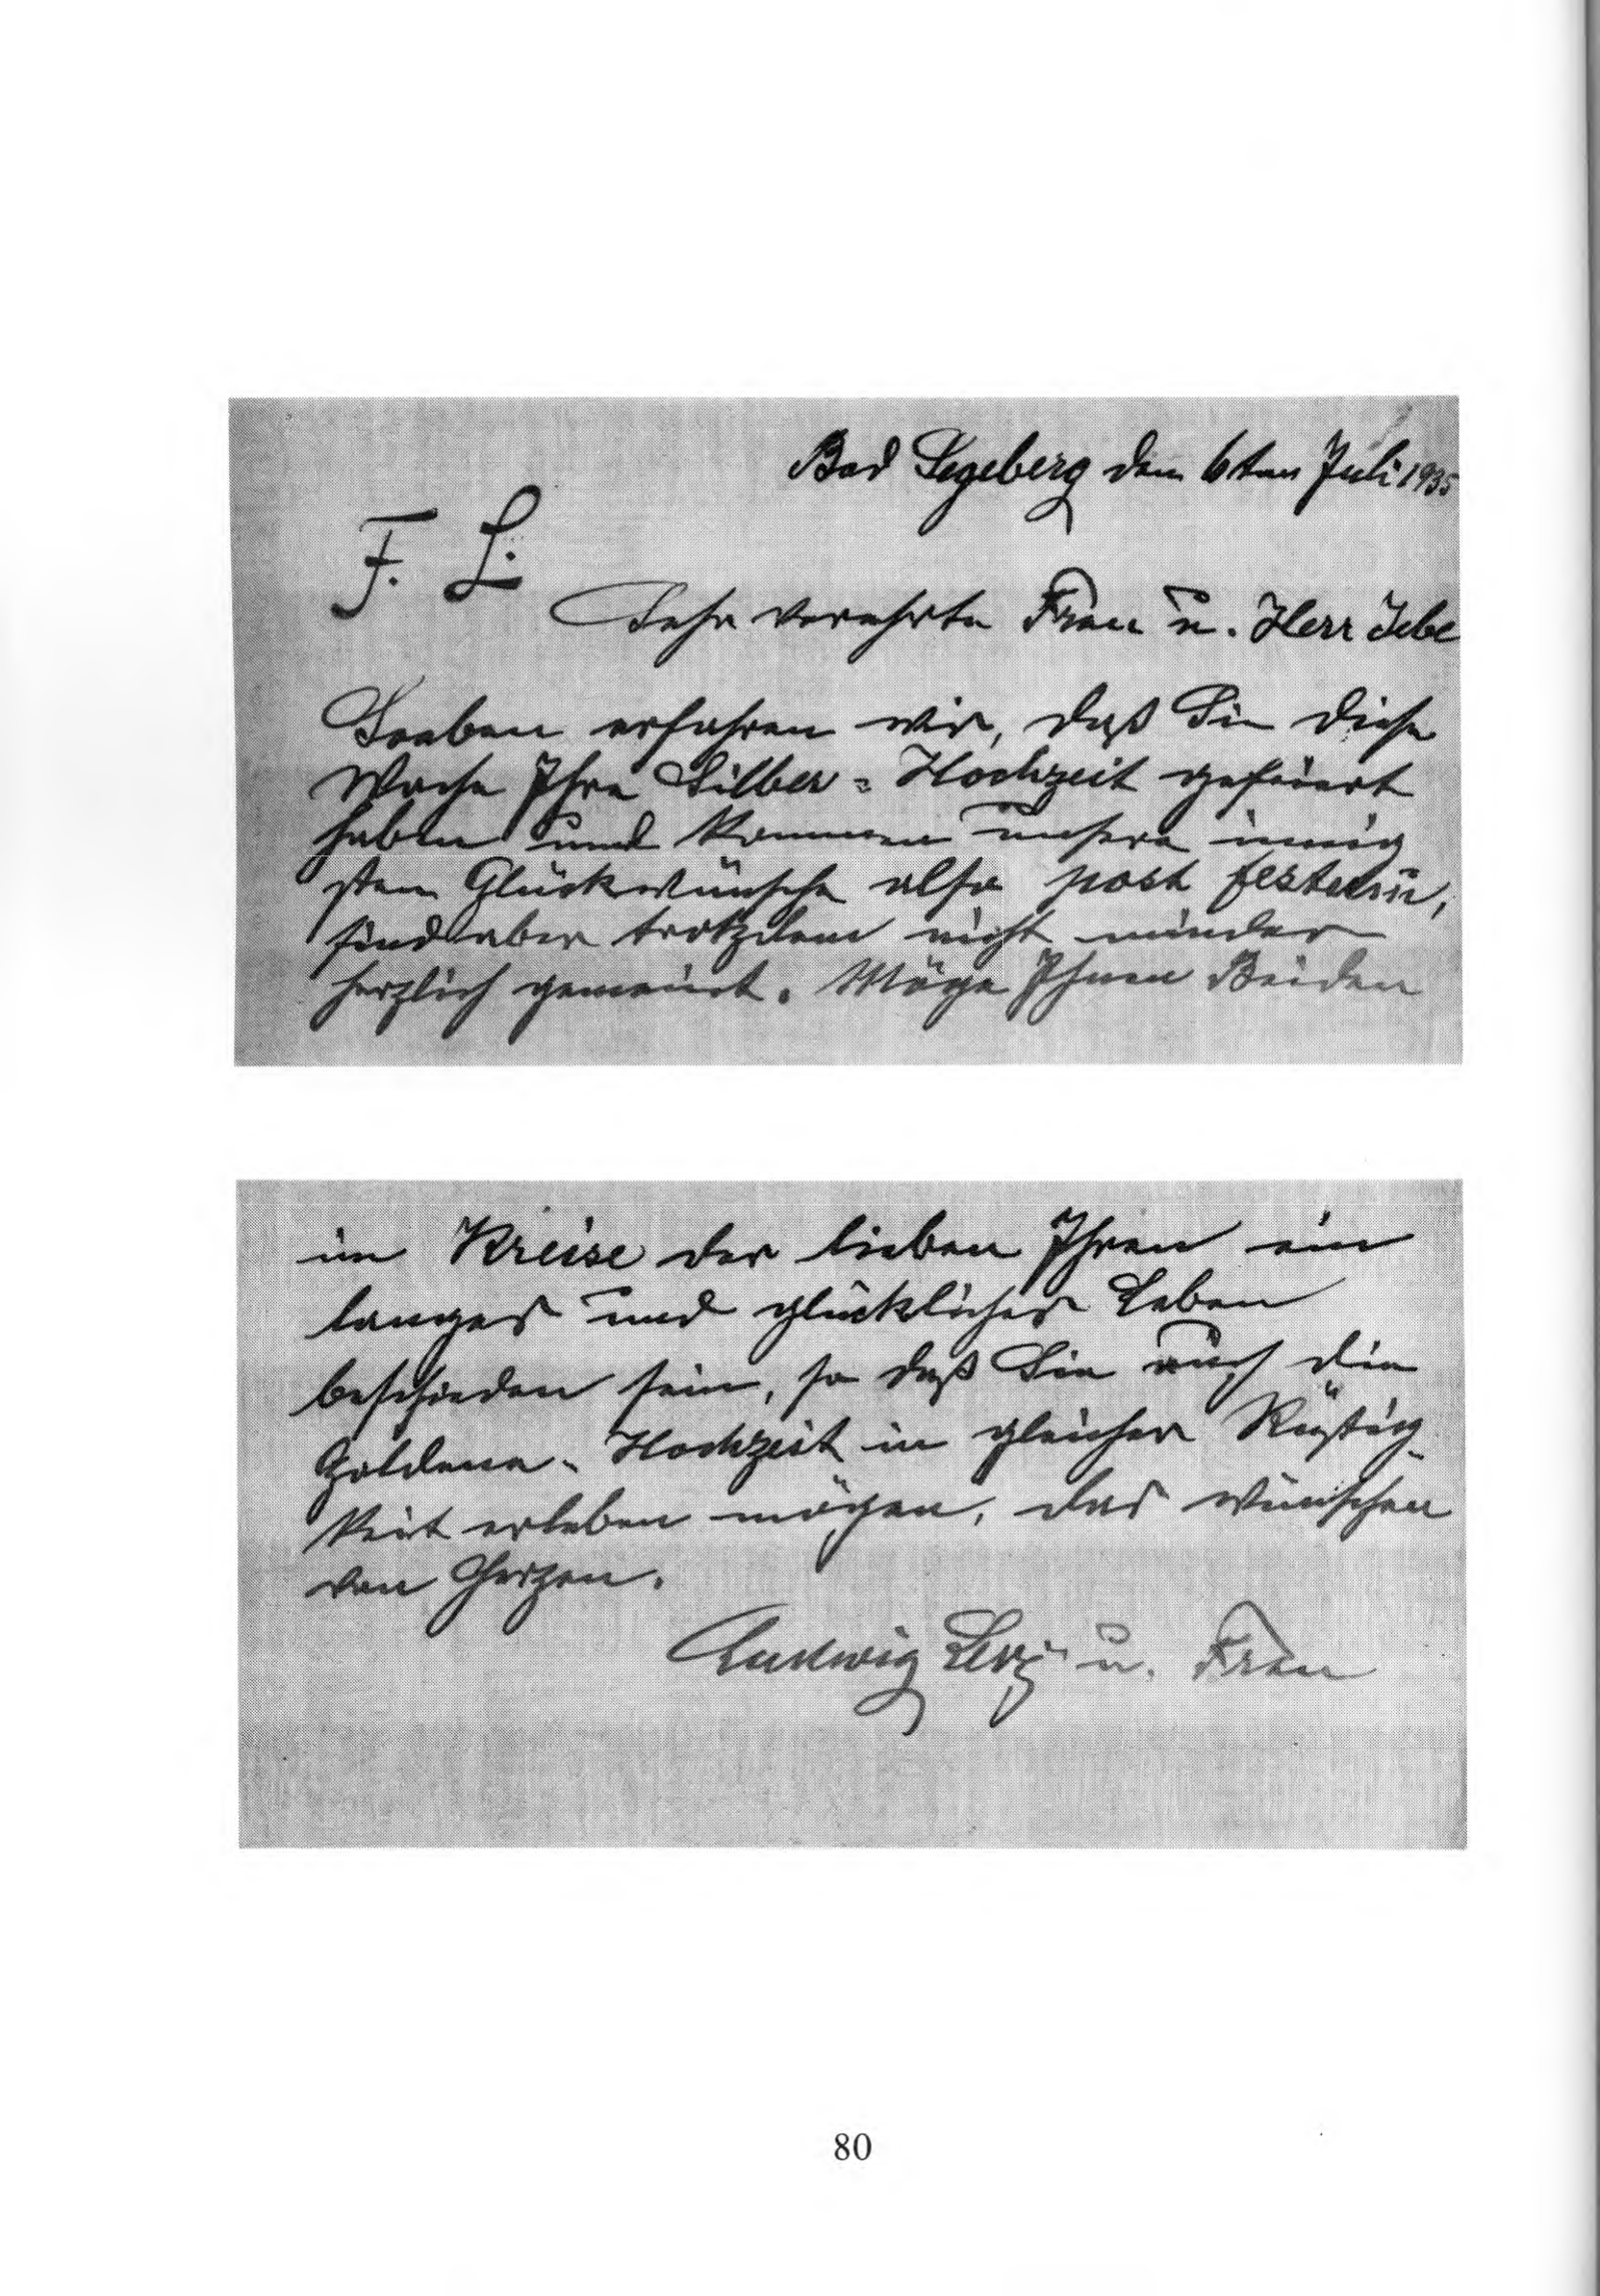 Bad Segeberg den 6ten Juli 1935
F. L.
Sehr verehrte Frau u. Herr Jebe
Soeben erfahren wir, daß Sie diese
Woche Ihre Silber-Hochzeit gefeiert
haben und kommen unsere innig
sten Glückwünsche also post festum,
sind aber trotzdem nicht minder
herzlich gemeint. Möge Ihnen Beiden
im Kreise der lieben Ihren ein
langes und glückliches Leben
beschieden sein, so daß Sie auch die
Goldene-Hochzeit in gleicher Rüstig-
keit erleben mögen, das wünschen
von Herzen.
Ludwig Levy u. Frau
80